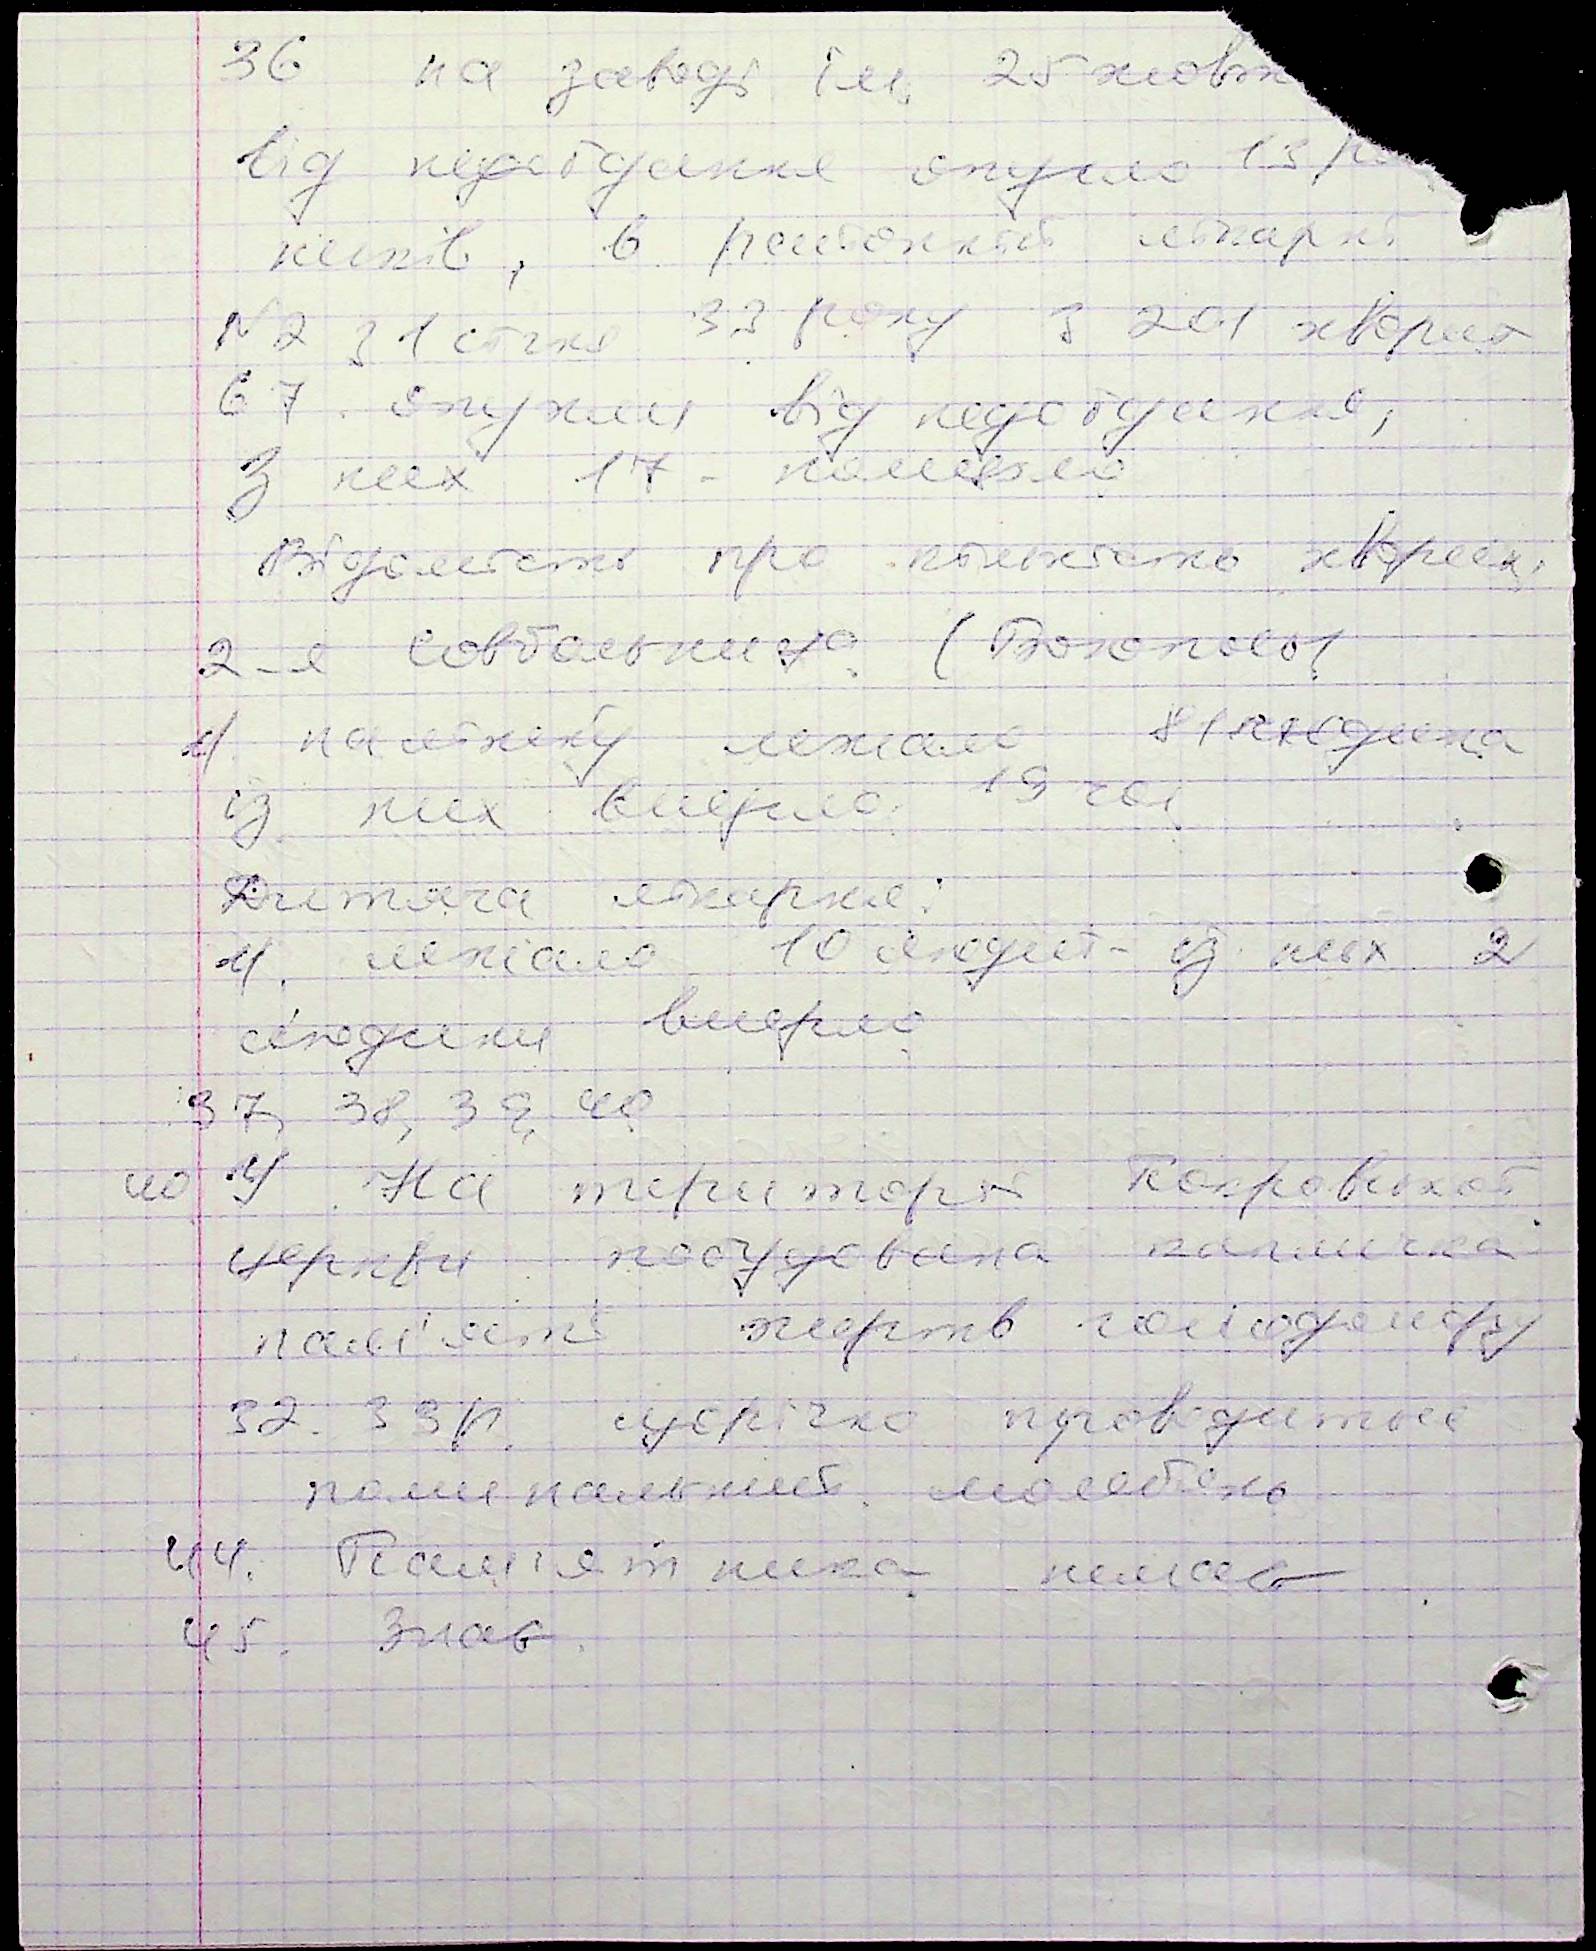 36 на заводі ім. 25 жовт
від недоїдання опухло 13 
ників, в районній лікарні
N2 з 1 січня 33 року з 201 хворих
67 опухли від недоїдання,
З них 17 - померло
Відомість про кількість хворих.
2-я Совбольница
лежало 81 людина
із них вмерло 19 чол
Дитяча лікарня:
лежало 10 людей - із них 2
людини вмерло
37, 38, 39, 40
40 На території Покровської
церкви побудована капличка
пам'яті жертв голодомору
32. 33 р. щорічно проводиться
поминальний молебень
44. Пам'ятника немає
45. Знає.